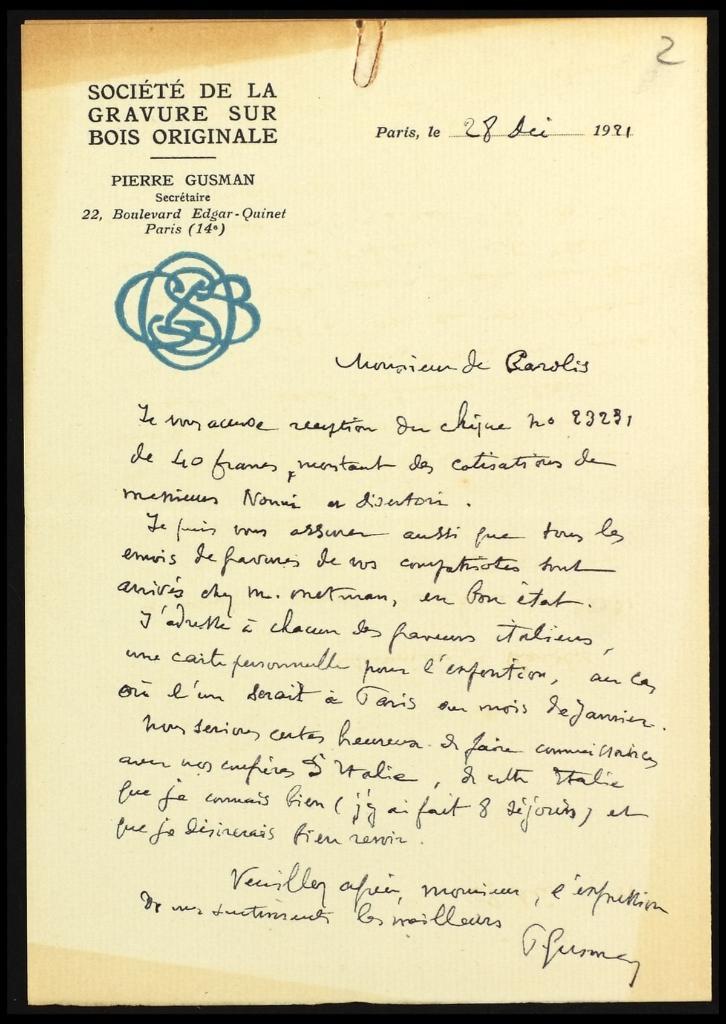 2
SOCIÉTÉ DE LA
GRAVURE SUR
BOIS ORIGINALE
PIERRE GUSMAN
Secrétaire
22, Boulevard Edgar-Quinet
Paris (14e)
Paris, le 28 Déc 1921
SGBO
Monsieur de Carolis
Je vous accuse reception du chèque no 23231
de 40 francs, montant des cotisations de
messieurs Nonni et Disertori.
Je puis vous assurer aussi que tous les
envois de gravures de vos compatriotes sont
arrivés chez M. Metman, en bon état.
J'adresse à chacun des graveurs italiens,
une carte personnelle pour l'exposition, au cas
où l'un serait à Paris au mois de Janvier.
Nous serions certes heureux de faire connaissances
avec nos confrères d'Italie, de cette Italie
que je connais bien (j'y ai fait 8 séjours) et
que je désirerais bien revoir.
Veuillez agréer, monsieur, l'expression
de mes sentiments les meilleurs
P Gusman